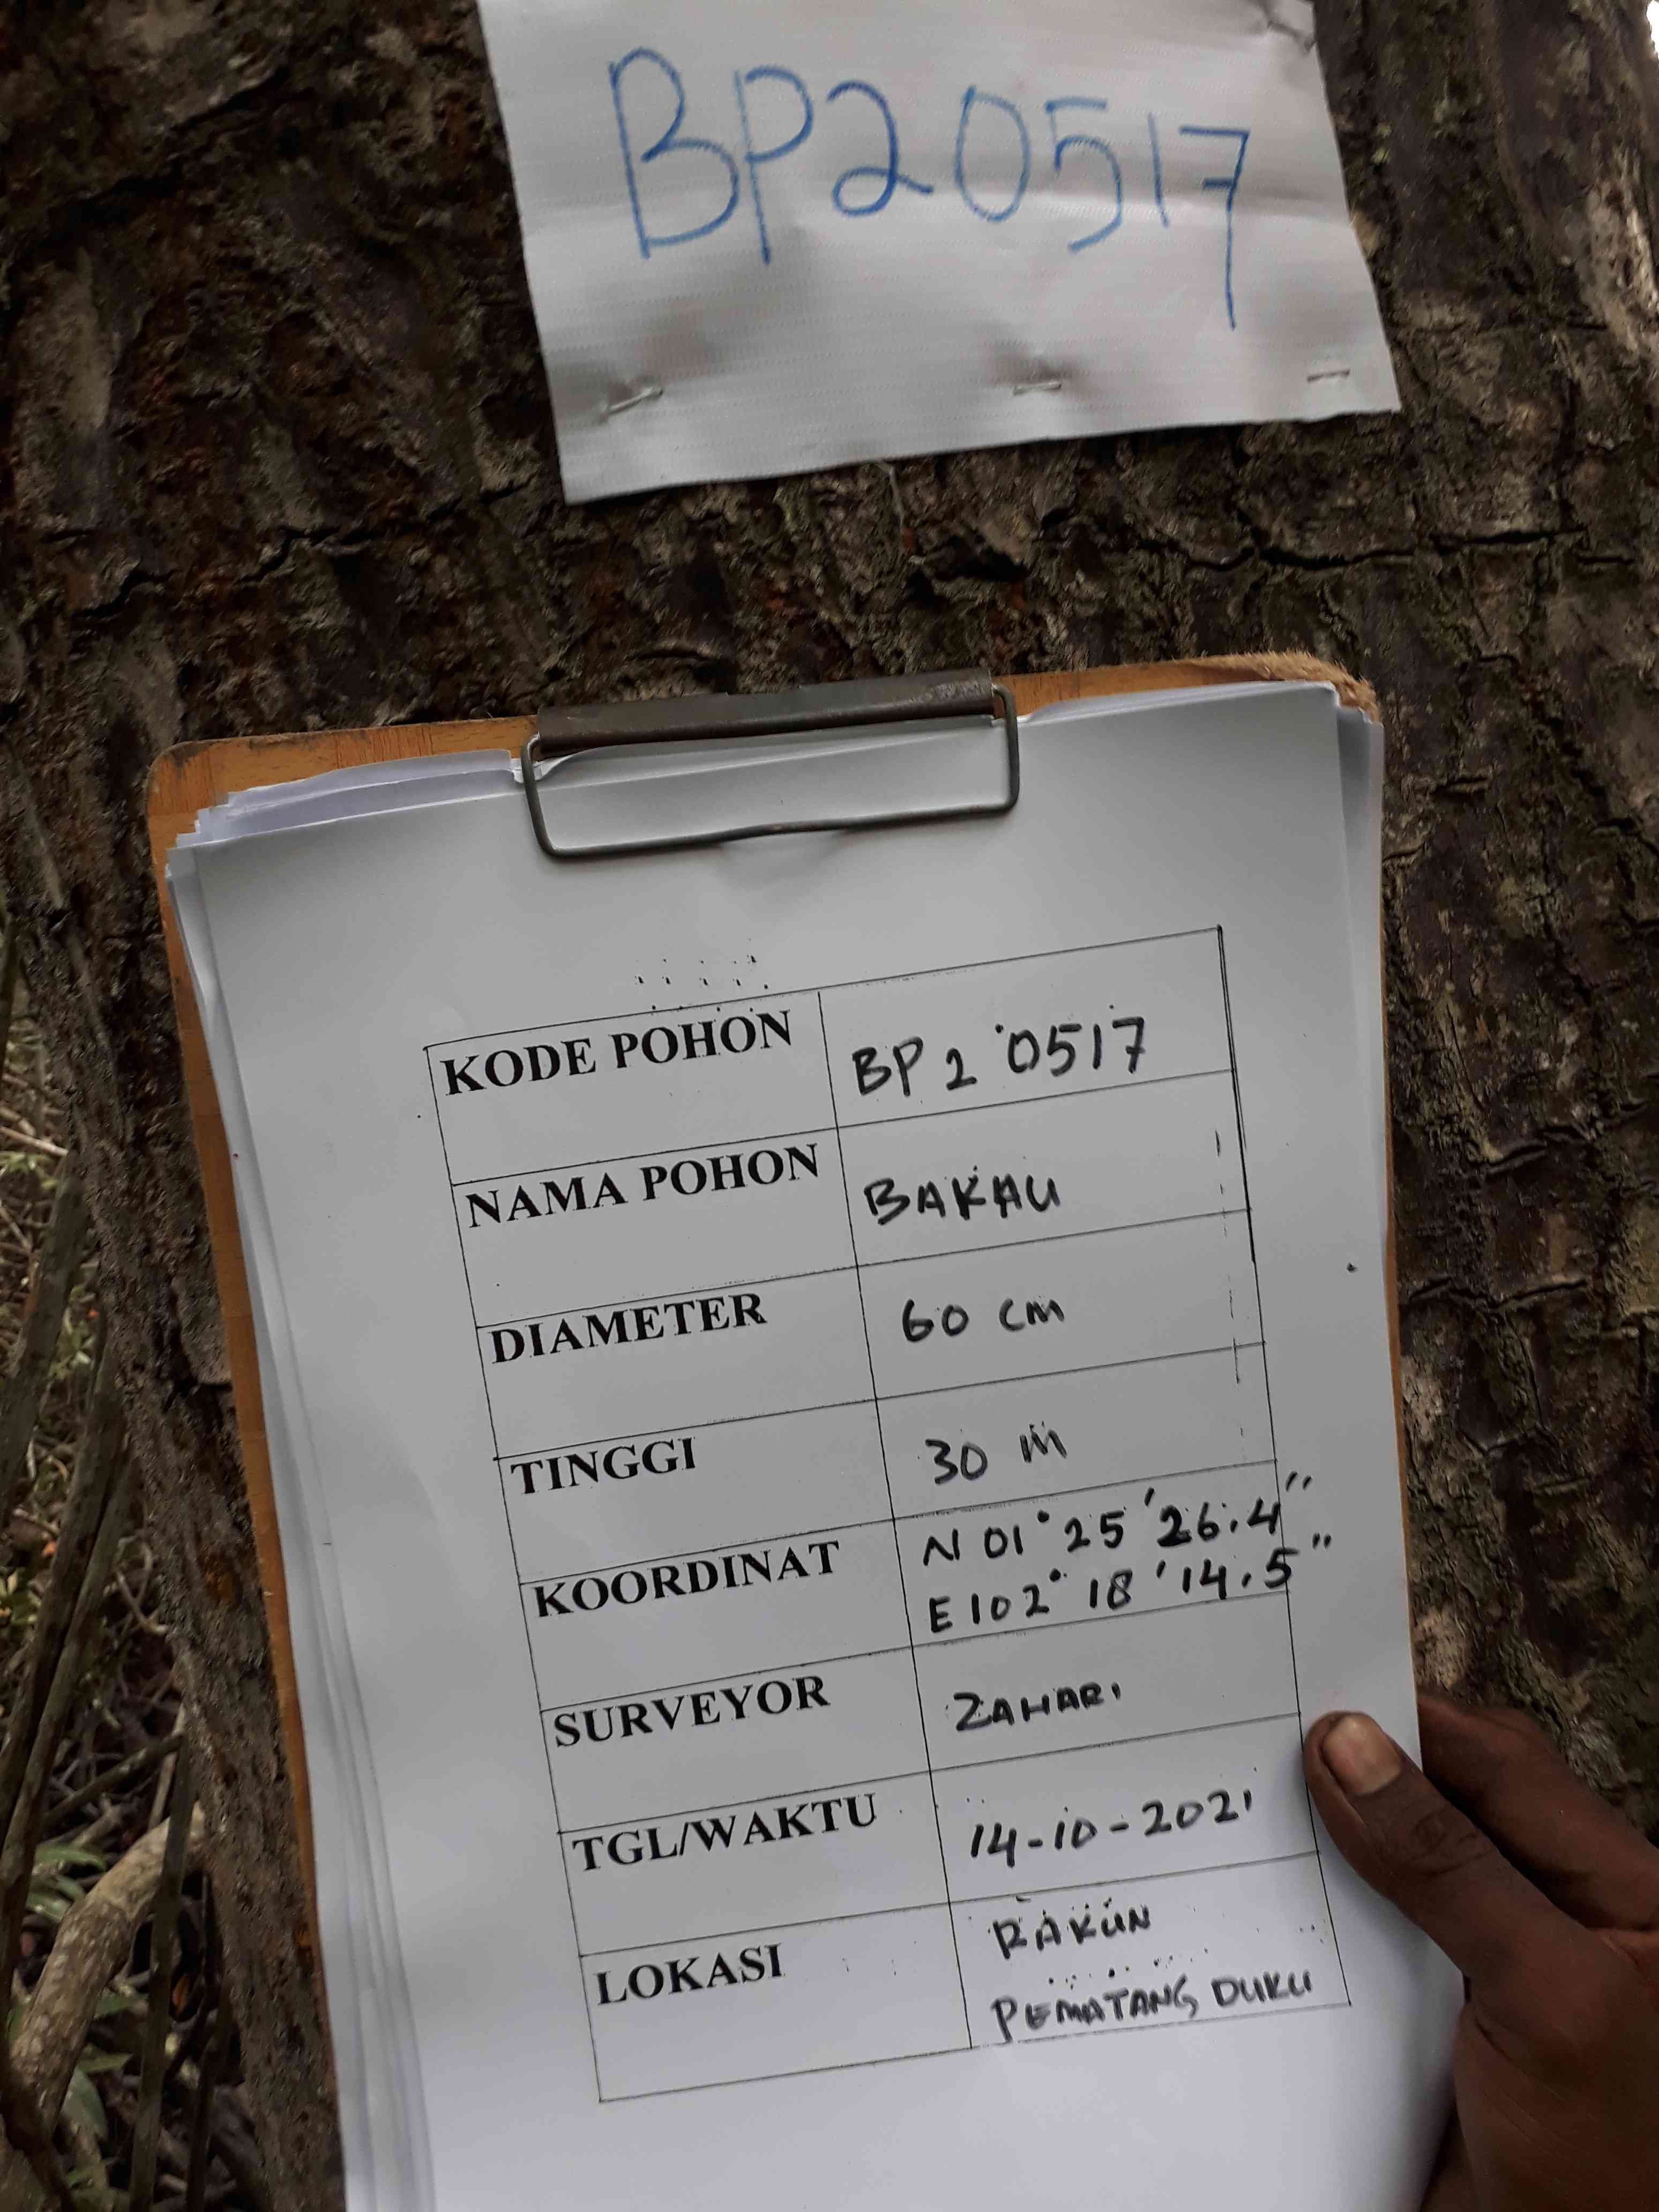 BP20517
KODE POHON BP2 0517
NAMA POHON BAKAU
DIAMETER 60 cm
TINGGI 30 m
KOORDINAT N 01° 25 ' 26.4"
E 102° 18 ' 14.5"
SURVEYOR ZAHARI
TGL/WAKTU 14-10-2021
LOKASI RAKUN
PEMATANG DUKU